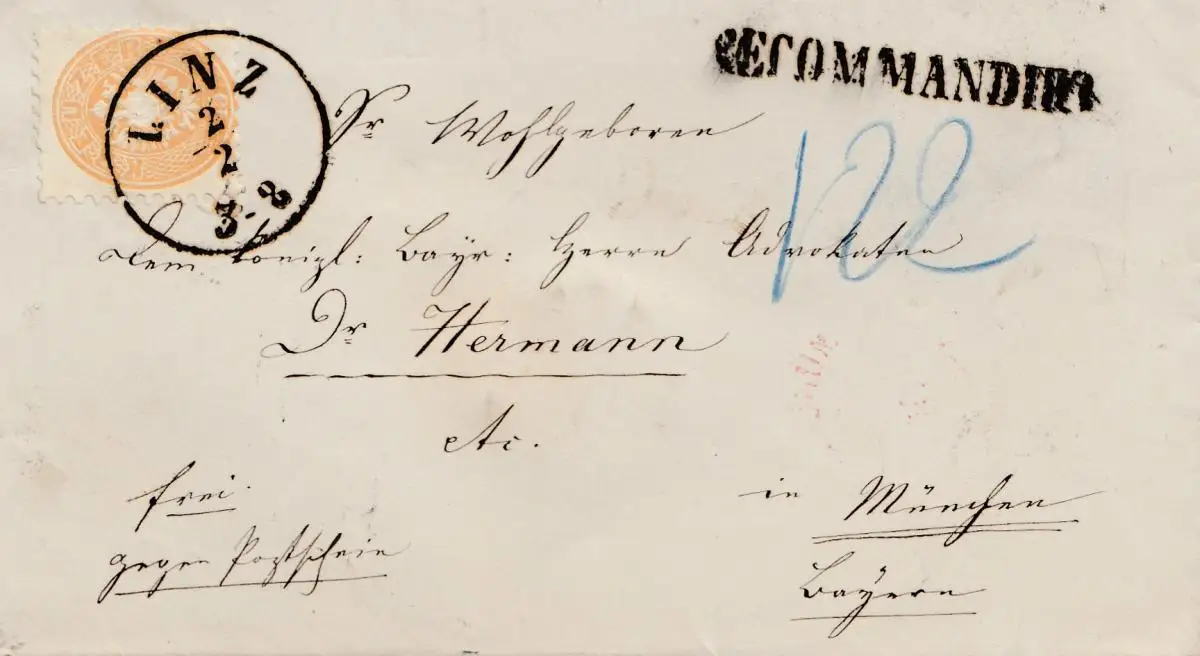 LINZ
2
2
3-8
RECOMMANDIRT
122
Sr Wohlgeboren
Dem Königl: Bayr: Herrn Advokaten
Dr Hermann
etc.
frei
gegen Postschein
in München
Bayern